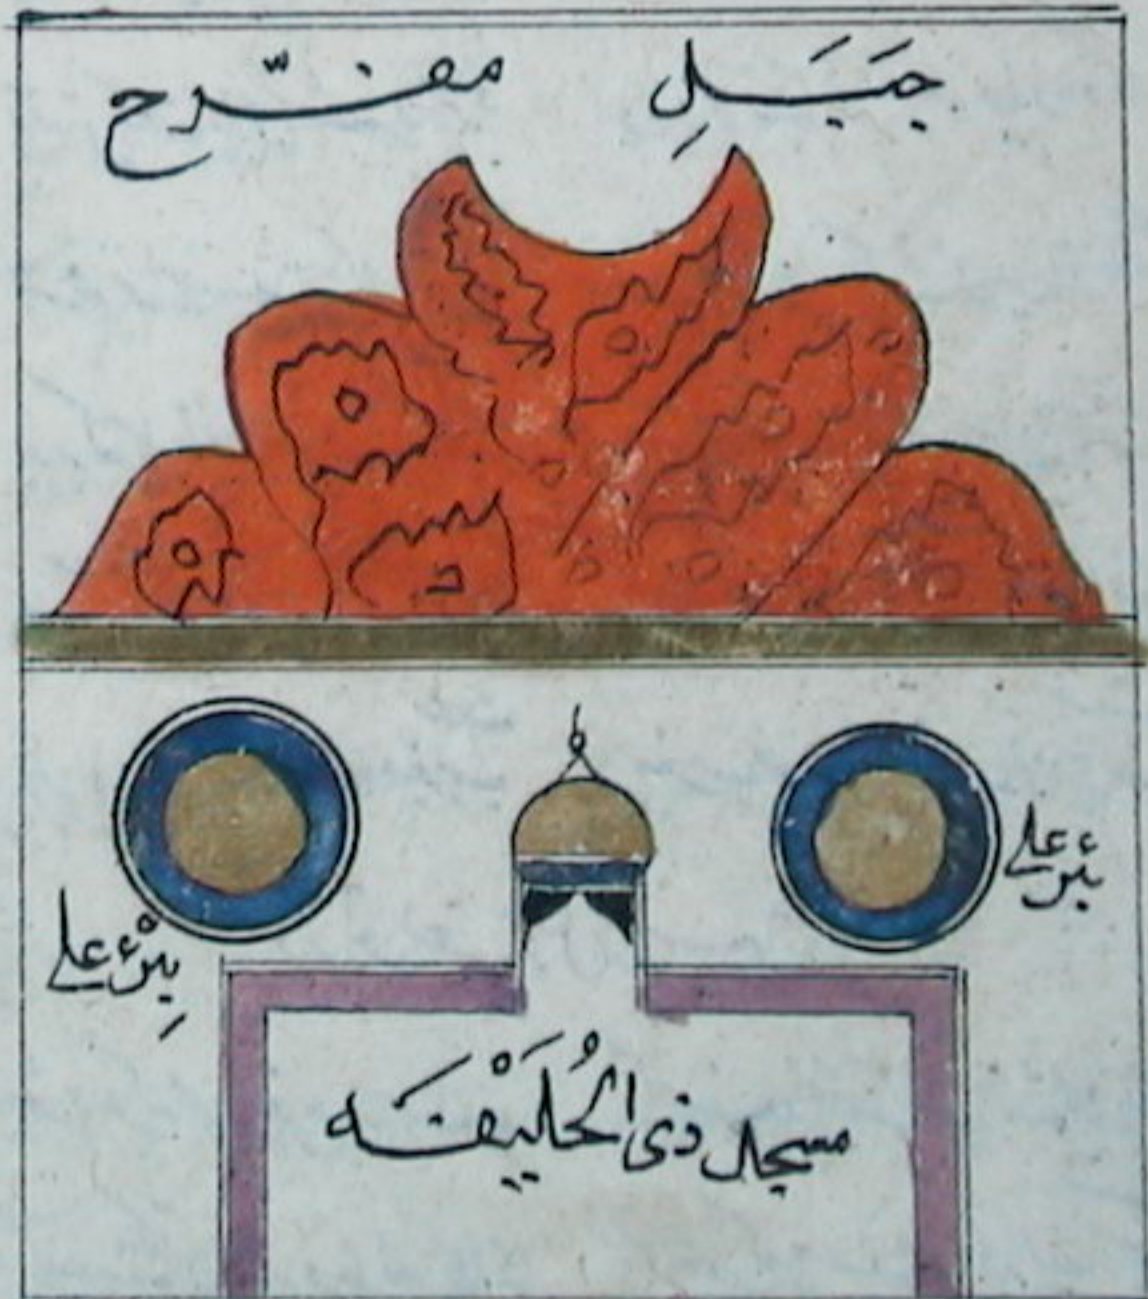 جَبَلِ مفرّح
بئر علي
بِئْر علي
مسجد ذى الحُلَيْفَه